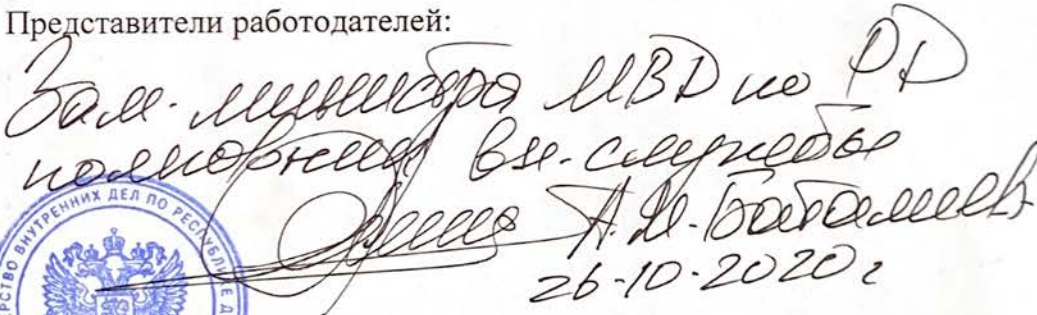 Представители работодателей:
Зам. министра МВД по РД
полковник вн. службы
А.М. Батталиев
26-10-2020 г
ВНУТРЕННИХ ДЕЛ ПО РЕСПУБЛИКЕ Д